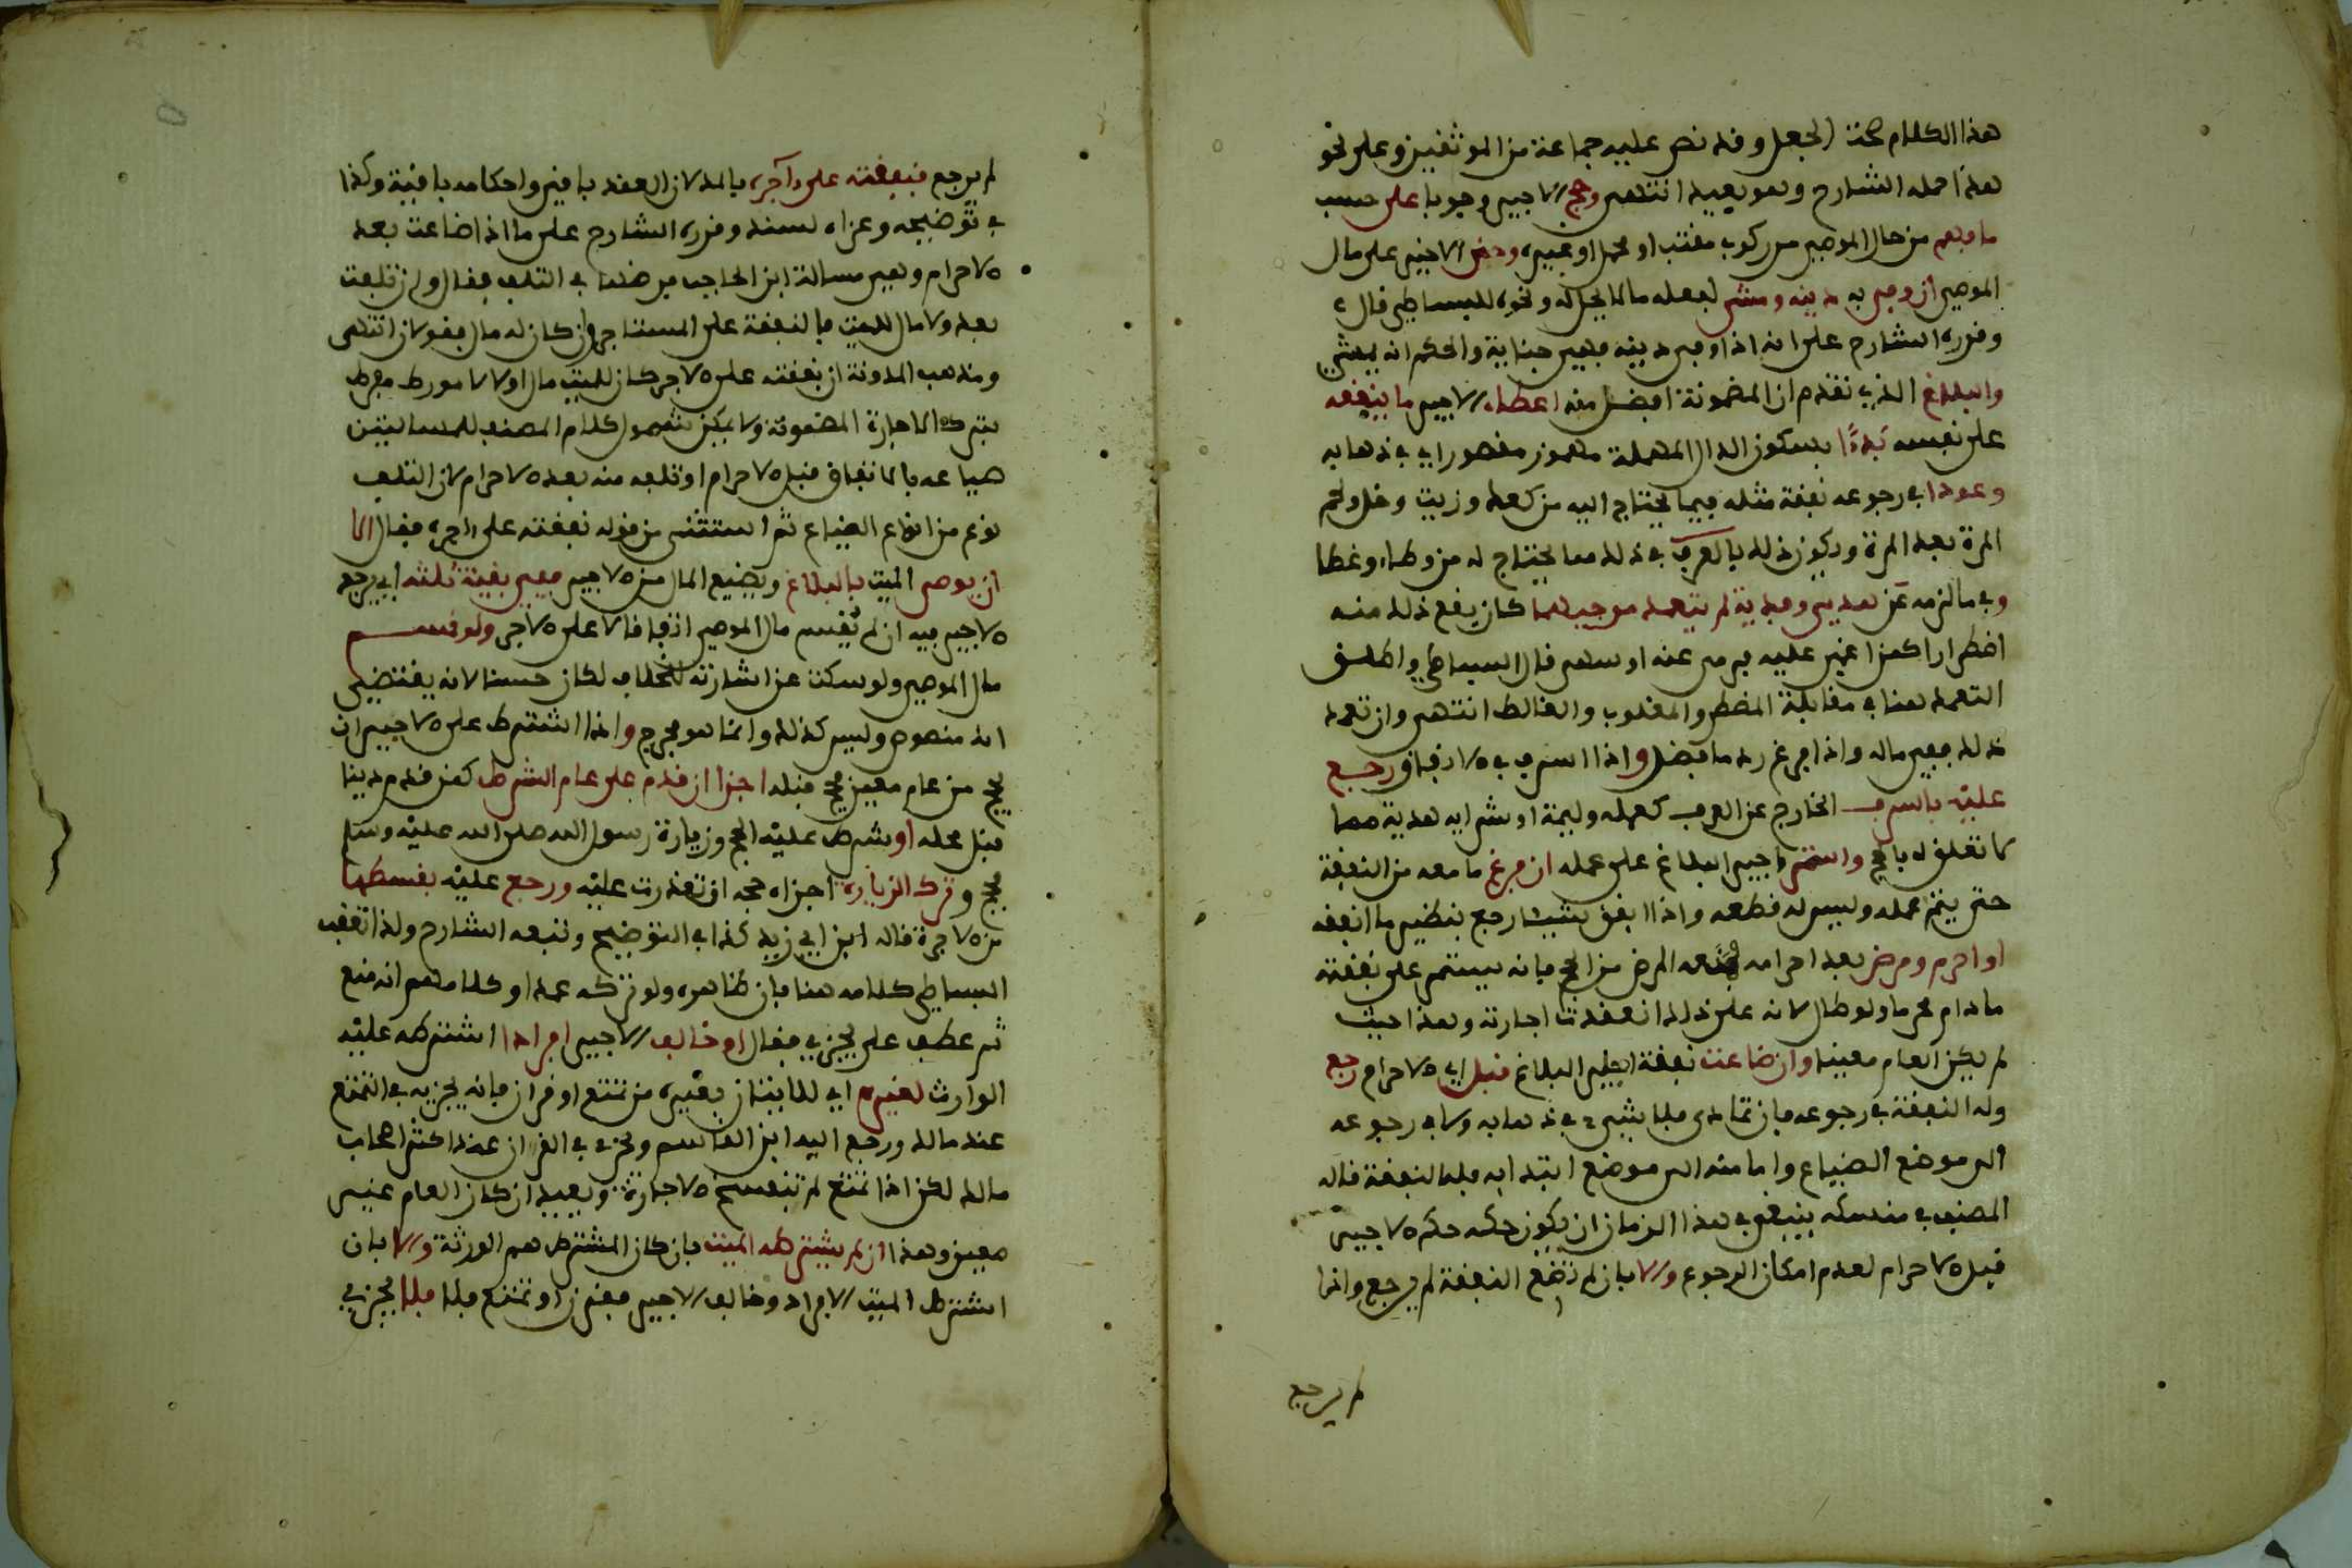 هذا الكلام صحة الجعل وقد نص عليه جماعة من الموثقين وعلى نحو
هذا حمله الشارح وهو بعيد انتهى وحج الاجير وجوبا على حسب
ما فهم من حال الموصي من ركوب مقتب او محمل او غيره وجنى الاجير على مال
الموصي ان وفى به دينه ومشى لفعله ما لا يحل له ونحوه للبساطي قال
وقرره الشارح على انه اذا وفى دينه فهي جناية والحكم انه يمشي
والبلاغ الذي تقدم ان المضمونة افضل منه اعطاء الاجير ما ينفقه
على نفسه بدءا بسكون الدال المهملة مهموز مقصور اي في ذهابه
وعودا في رجوعه نفقة مثله فيما يحتاج اليه من كعك وزيت وخل ولحم
المرة بعد المرة ويكون ذلك بالعرف في ذلك مما يحتاج له من وطاء وغطا
وفي ما لزمه من هدي وفدية لم يتعمد موجبهما كان يقع ذلك منه
اضطرارا كمن اغمي عليه فرمى عنه او سهى قال البساطي واطلق
التعمد هنا في مقابلة المضطر والمغلوب والغالط انتهى وان تعمد
ذلك ففي ماله واذا فرغ رد ما فضل واذا اسرف في الانفاق ورجع
عليه بالسرف الخارج عن العرف كعمله وليمة او شرايه هدية مما
لا تعلق له بالحج واستمر اجير البلاغ على عمله ان فرغ ما معه من النفقة
حتى يتم عمله وليس له قطعه واذا انفق شيئا رجع بنظير ما انفقه
او احرم ومرض بعد احرامه ومنعه المرض من الحج فانه يستمر على نفقته
ما دام محرما ولو طال لانه على ذلك انعقدت اجارته وهذا حيث
لم يكن العام معينا وان ضاعت نفقة اجير البلاغ قبل اي الاحرام رجع
وله النفقة في رجوعه فان تمادى فلا شيء في ذهابه ولا في رجوعه
الى موضع الضياع واما منه الى موضع ابتدايه فله النفقة قاله
المصنف في منسكه ينبغي في هذا الزمان ان يكون حكمه حكم الاجير
قبل الاحرام لعدم امكان الرجوع والا بان لم تضع النفقة لم يرجع واذا
لم يرجع
لم يرجع فنفقته على آجره بالمد لان العقد باق واحكامه باقية وكذا
في توضيحه وعزاه لسند وقرره الشارح على ما اذا ضاعت بعد
الاحرام وهي مسالة ابن الحاجب فرضها في التلف فقال ولو تلفت
بعده ولا مال للميت فالنفقة على المستاجر وان كان له مال فقولان انتهى
ومذهب المدونة ان نفقته على الاجر كان للميت مال او لا لانه مورط مفرط
بتركه الاجارة المضمونة ولا يمكن شمول كلام المصنف للمسالتين
ضياعه بالانفاق قبل الاحرام او تلفه منه بعد الاحرام لان التلف
نوع من انواع الضياع ثم استثنى من قوله نفقته على اجره فقال الا
ان يوصي الميت بالبلاغ ويضيع المال من الاجير ففي بقية ثلثه اي يرجع
الاجير فيه ان لم يقسم مال الموصي اتفاقا لا على الاجر ولو قسم
مال الموصي ولو سكت عن اشارته للخلاف لكان حسنا لانه يقتضي
انه منصوص وليس كذلك وانما هو مخرج واذا اشترط على الاجير ان
يحج من عام معين فحج قبله اجزا ان قدم على عام الشرط كمن قدم دينا
قبل محله او شرط عليه الحج وزيارة رسول الله صلى الله عليه وسلم
فحج وترك الزيارة اجزاه حجه ان تعذرت عليه ورجع عليه بقسطها
من الاجرة قاله ابن ابي زيد كذا في التوضيح وتبعه الشارح ولذا تعقب
البساطي كلامه هنا فان ظاهره ولو تركه عمدا وكلامهم انه منع
ثم عطف على يجزي فقال او خالف الاجير افرادا اشترطه عليه
الوارث لغيره اي للاتيان بغيره من تمتع او قران فانه يجزيه في التمتع
عند مالك ورجع اليه ابن القاسم ويجزي في القران عند اكثر اصحاب
مالك لكن اذا تمتع لم تنفسخ الاجارة ويعيد ان كان العام غير
معين وهذا ان لم يشترطه الميت بان كان المشترط هم الورثة والا بان
اشترط الميت الافراد وخالف الاجير فقرن او تمتع فلا فلا يجزي